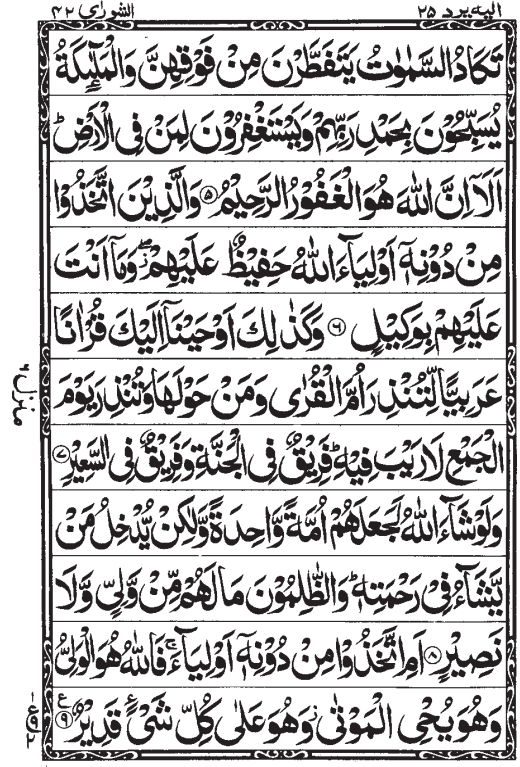 الیه یرد ۲۵
الشورٰی ۴۲
تَكَادُ السَّمٰوٰتُ يَتَفَطَّرْنَ مِنْ فَوْقِهِنَّ وَالْمَلٰٓئِكَةُ
يُسَبِّحُوْنَ بِحَمْدِ رَبِّهِمْ وَيَسْتَغْفِرُوْنَ لِمَنْ فِى الْاَرْضِ ؕ
اَلَاۤ اِنَّ اللّٰهَ هُوَ الْغَفُوْرُ الرَّحِيْمُ ۵ وَالَّذِيْنَ اتَّخَذُوْا
مِنْ دُوْنِهٖۤ اَوْلِيَآءَ اللّٰهُ حَفِيْظٌ عَلَيْهِمْ ۖ وَمَاۤ اَنْتَ
عَلَيْهِمْ بِوَكِيْلٍ ۶ وَكَذٰلِكَ اَوْحَيْنَاۤ اِلَيْكَ قُرْاٰنًا
عَرَبِيًّا لِّتُنْذِرَ اُمَّ الْقُرٰى وَمَنْ حَوْلَهَا وَتُنْذِرَ يَوْمَ
الْجَمْعِ لَا رَيْبَ فِيْهِ ؕ فَرِيْقٌ فِى الْجَنَّةِ وَفَرِيْقٌ فِى السَّعِيْرِ ۷
وَلَوْ شَآءَ اللّٰهُ لَجَعَلَهُمْ اُمَّةً وَّاحِدَةً وَّلٰكِنْ يُّدْخِلُ مَنْ
يَّشَآءُ فِىْ رَحْمَتِهٖ ؕ وَالظّٰلِمُوْنَ مَا لَهُمْ مِّنْ وَّلِىٍّ وَّلَا
نَصِيْرٍ ۸ اَمِ اتَّخَذُوْا مِنْ دُوْنِهٖۤ اَوْلِيَآءَ ۚ فَاللّٰهُ هُوَ الْوَلِىُّ
وَهُوَ يُحْىِ الْمَوْتٰى ۫ وَهُوَ عَلٰى كُلِّ شَىْءٍ قَدِيْرٌ ۹ ع
منزل ۶